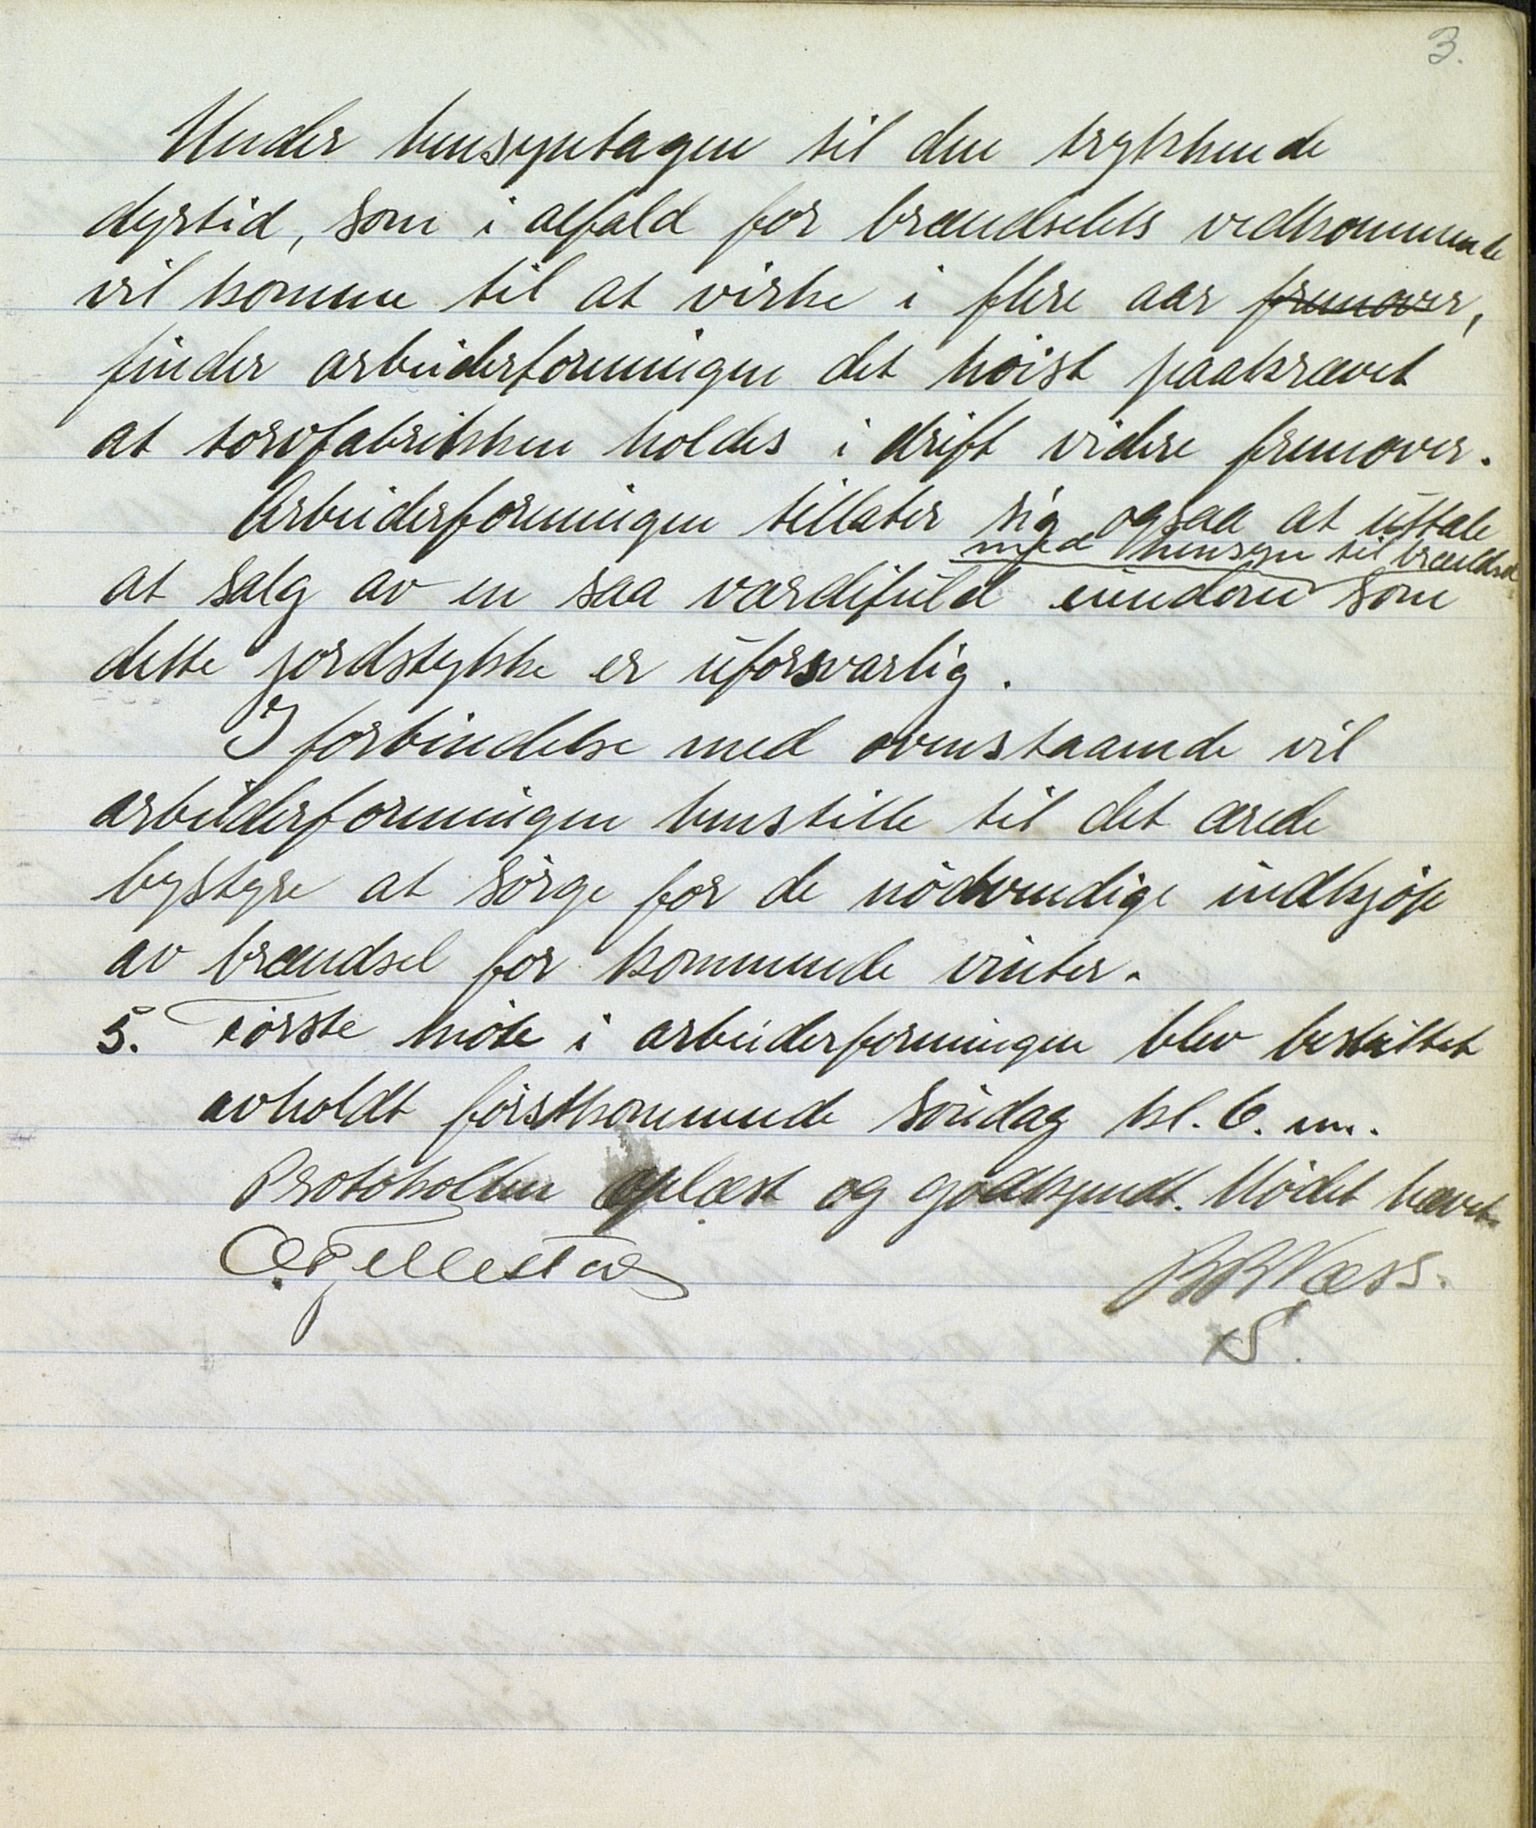 3.
Under hensyntagen til den trykkende
dyrtid, som i alfald for brændselets vedkommende
vil komme til at virke i flere aar fremover,
finder arbeiderforeningen det høist paakrævet
at torvfabrikken holdes i drift videre fremover.
Arbeiderforeningen tillater sig ogsaa at uttale
med hensyn til brændsel
at salg av en saa værdifuld eiendom som
dette jordstykke er uforsvarlig.
I forbindelse med ovenstaaende vil
arbeiderforeningen henstille til det ærede
bystyre at sørge for de nödvendige indkjöp
av brændsel for kommende vinter.
5. Første møte i arbeiderforeningen blev besluttet
avholdt førstkommende søndag kl. 6. em.
Protokollen oplæst og godkjendt. Mødet hævet.
B B Næss.
S.